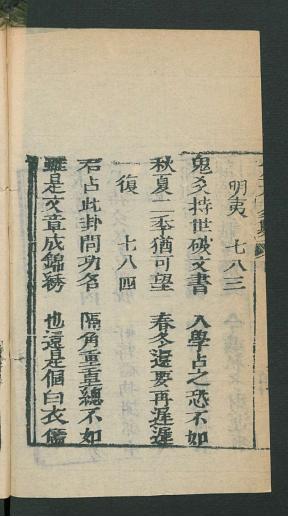 明夷　七八三
鬼爻持世碍文書　入學占之恐不如
秋夏二季猶可望　春冬還要再遲遲
一復　七八四
若占此卦問功名　隔角重重總不如
雖是文章成錦綉　也還是個白衣儒